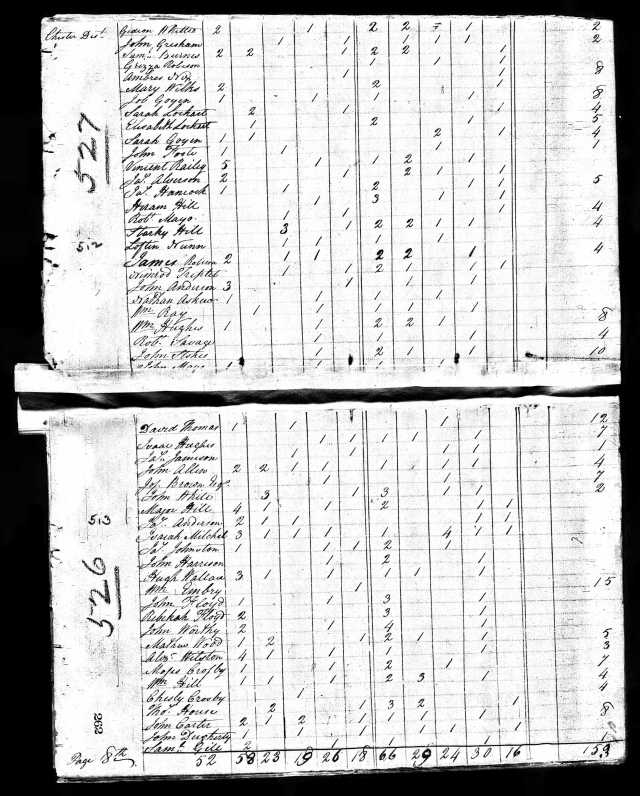 Chester Dist.
Gideon Whitted 2 1 2 2 1 2
John Gresham 1 1 1 1 1 2
Saml. Burnes 2 2 1 2 2 1
Grizza Robison 1 1 1
Ambres Nix 1 1 8
Mary Wilks 2 2 1
Job Goyen 1 1 1 1 1 8
Sarah Lockart 2 1 4
Elisabeth Lockart 1 2 1 5
Sarah Goyen 1 1 2 1 4
John Foote 1 1 1 1
Vincent Railey 5 1 1 2 1
Ja. Alverson 2 1 2 1 1
Ja. Hancock 1 1 2 1 5
Hiram Hill 1 3 1 1
Robt. Mayo 1 1 4
Starky Hill 3 1 2 2 1 1 4
Loftin Nunn 1 1 1 1
James Robison 2 1 1 2 2 1 4
Nimrod Triplet 1 2 1 1 1
John Anderson 3 1 1 1 1
Nathan Askew 1 1 1 1 1
Wm. Ray 1 1 1 1 1 1
Wm. Hughs 1 1 2 2 1 8
Robt. Savage 1 1 4
John Stokes 1 2 1 1 10
John Mayo 1 1 1 1 1
527
512
David Thomas 1 1 1 12
Isaac Hughes 1 1 1 1 1 7
Ja. Jamison 1 1 1 1 1
John Allen 2 2 1 1 1 1 4
Jos. Brown Esq. 7
John Whill 3 1 3 1 2
Major Hill 4 1 1 2 1 1
Ja. Anderson 2 1 1 1 1
Isaiah Mitchel 3 1 1 1 1 4 1 1
Ja. Johnston 1 1 1 2 1
John Harrison 1 2 1
Hugh Wallace 3 1 1 1 1
Wm. Embry 1 15
John Floyd 1 1 3 1
Rebekah Floyd 2 3 1
John Worthy 2 1 4 1
Mathew Wood 1 2 1 2 1 1 5
Alexr. Wilston 4 1 1 3
Moses Crosby 1 1 2 1 7
Wm. Hill 1 1 1 1 2 3 1 4
Chesly Crosby 1 1 4
Tho. House 2 1 3 2 1
John Carter 2 1 2 1 1 1 1 8
John Dugherty 1 1 1 1 1 1 1
Saml. Gill 2 1
52 58 23 19 26 18 66 29 24 30 16 153
513
526
262
Page 18th